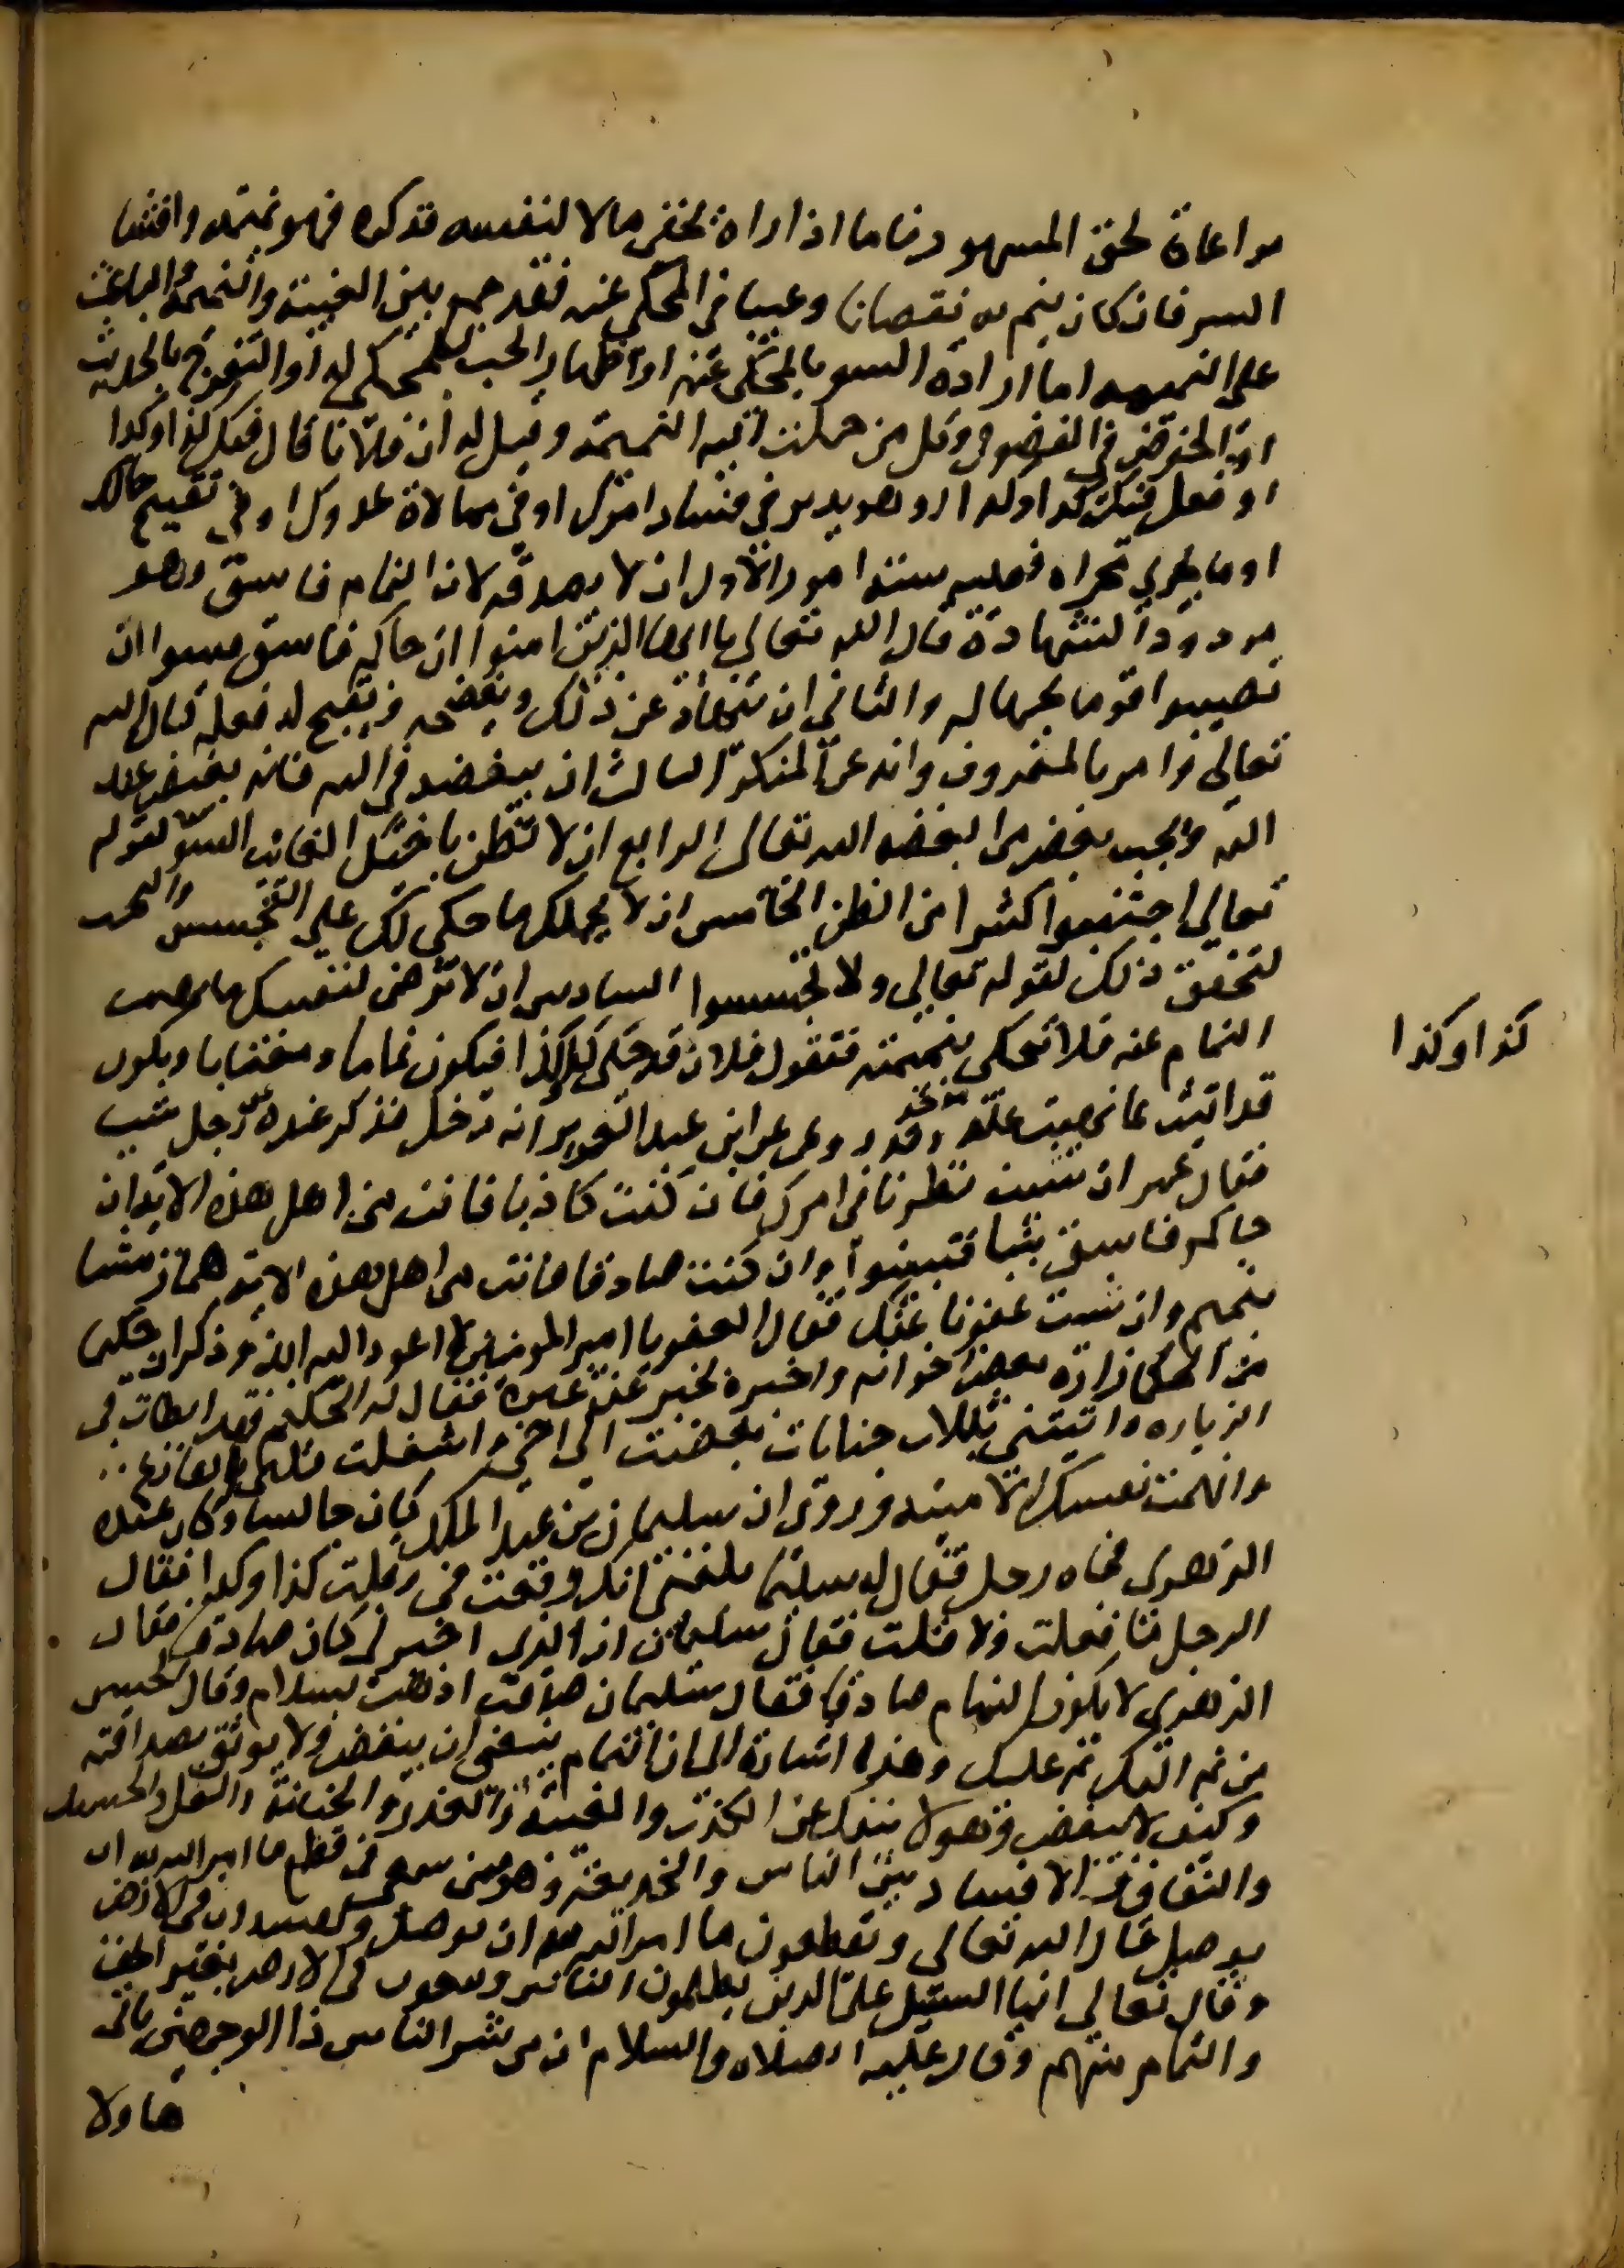 مراعاة لحق المشهود فاما اذا راه يخفى مالا لنفسه فذكره فهو نميمة وافشا
السر فان كان ينم به نقصانا وعيبا في المحكي عنه فقد جمع بين الغيبة والنميمة والباعث
على النميمه اما ارادة السو بالمحكي عنه او اظهار الحب للمحكي له او التفرج بالحديث
او الخوض في الفضول وكل من حملت اليه النميمة وقيل له ان فلانا قال فيك كذا وكذا
او فعل فيك كذا وكذا او هو يدبر في فساد امرك او في ممالاة عدوك او في تقبيح حالك
او ما يجري مجراه فعليه ستة امور الاول ان لا يصدقه لان النمام فاسق وهو
مردود الشهادة قال الله تعالى يا ايها الذين امنوا ان جاكم فاسق فتبينوا ان
تصيبوا قوما بجهاله والثاني ان ينهاه عن ذلك وينصحه ويقبح له فعله قال الله
تعالى وامر بالمعروف وانه عن المنكر الثالث ان يبغضه في الله فانه بغيض عند
الله ويجب بغض من ابغضه الله تعالى الرابع ان لا تظن باخيك الغائب السؤ لقوله
تعالى اجتنبوا كثيرا من الظن الخامس ان لا يحملك ما حكى لك على التجسس والبحث
لتحقق ذلك لقوله تعالى ولا تجسسوا السادس ان لا ترضى لنفسك ما نهيت
النمام عنه فلا تحكي نميمته فتقول فلان قد حكى لي كذا فيكون نماما ومغتابا ويكون
قد اتيت ما نهيت عنه وقد روي عن عمر ابن عبد العزيز انه دخل فذكر عنده عن رجل شيا
فقال عمر ان شيت نظرنا في امرك فان كنت كاذبا فانت من اهل هذه الاية ان
جاكم فاسق بنبا فتبينوا وان كنت صادقا فانت من اهل هذه الاية هماز مشا
بنميم وان شيت عفونا عنك فقال العفو يا امير المومنين لا اعود اليه ابدا وذكر ان حكيما
من الحكما زاره بعض اخوانه واخبره بخبر عن غيره فقال له الحكيم قد ابطات في
الزياره واتيتني بثلاث جنايات بغضت الي اخي واشغلت قلبي الفارغ
واتهمت نفسك الامينه وروي ان سليمان بن عبد الملك كان جالسا وكان عنده
الزهري فجاه رجل فقال له سليمان بلغني انك وقعت في وقلت كذا وكذا فقال
الرجل ما فعلت ولا قلت فقال سليمان ان الذي اخبرني كان صادقا فقال
الزهري لا يكون النمام صادقا فقال سليمان صدقت اذهب بسلام وقال الحسن
من نم اليك نم عليك وهذا اشارة الى ان النمام ينبغي ان يبغض ولا يوثق بصداقته
وكيف لا يبغض وهو لا ينفك عن الكذب والغيبة والغدر والخيانة والغل والحسد
والنفاق والافساد بين الناس والخديعة وهو ممن سعى في قطع ما امر الله به ان
يوصل قال الله تعالى ويقطعون ما امر الله به ان يوصل ويفسدون في الارض
وقال تعالى انما السبيل على الذين يظلمون الناس ويبغون في الارض بغير الحق
والنمام منهم وقال عليه الصلاه والسلام ان من شر الناس ذا الوجهين ياتي
هاولا
كذا وكذا